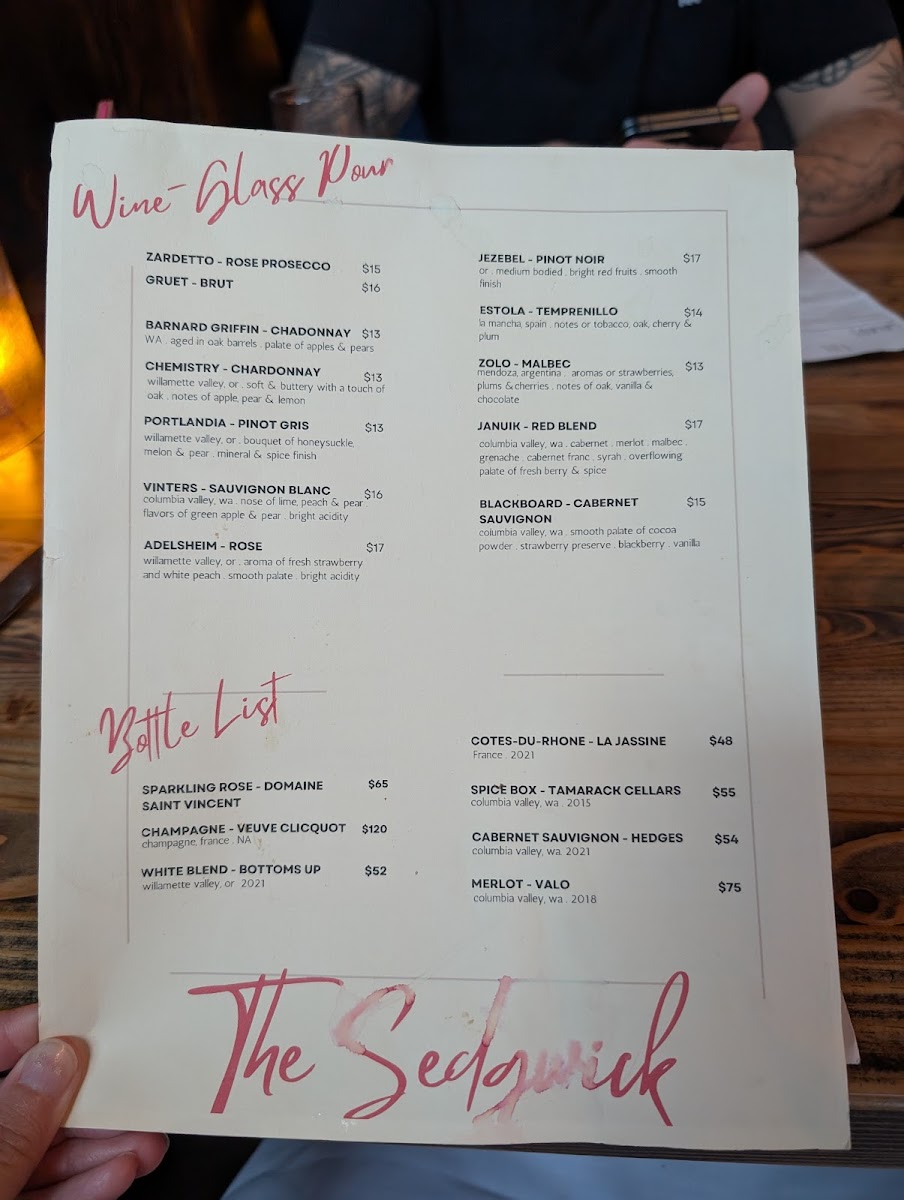 Wine- Glass Pour
ZARDETTO - ROSE PROSECCO $15
GRUET - BRUT $16
BARNARD GRIFFIN - CHADONNAY $13
WA . aged in oak barrels . palate of apples & pears
CHEMISTRY - CHARDONNAY $13
willamette valley, or . soft & buttery with a touch of
oak . notes of apple, pear & lemon
PORTLANDIA - PINOT GRIS $13
willamette valley, or . bouquet of honeysuckle,
melon & pear . mineral & spice finish
VINTERS - SAUVIGNON BLANC $16
columbia valley, wa . nose of lime, peach & pear .
flavors of green apple & pear . bright acidity
ADELSHEIM - ROSE $17
willamette valley, or . aroma of fresh strawberry
and white peach . smooth palate . bright acidity
JEZEBEL - PINOT NOIR $17
or . medium bodied . bright red fruits . smooth
finish
ESTOLA - TEMPRENILLO $14
la mancha, spain . notes or tobacco, oak, cherry &
plum
ZOLO - MALBEC $13
mendoza, argentina . aromas or strawberries,
plums & cherries . notes of oak, vanilla &
chocolate
JANUIK - RED BLEND $17
columbia valley, wa . cabernet . merlot . malbec .
grenache . cabernet franc . syrah . overflowing
palate of fresh berry & spice
BLACKBOARD - CABERNET $15
SAUVIGNON
columbia valley, wa . smooth palate of cocoa
powder . strawberry preserve . blackberry . vanilla
Bottle List
SPARKLING ROSE - DOMAINE $65
SAINT VINCENT
CHAMPAGNE - VEUVE CLICQUOT $120
champagne, france . NA
WHITE BLEND - BOTTOMS UP $52
willamette valley, or 2021
COTES-DU-RHONE - LA JASSINE $48
France . 2021
SPICE BOX - TAMARACK CELLARS $55
columbia valley, wa . 2015
CABERNET SAUVIGNON - HEDGES $54
columbia valley, wa. 2021
MERLOT - VALO $75
columbia valley, wa . 2018
The Sedgwick